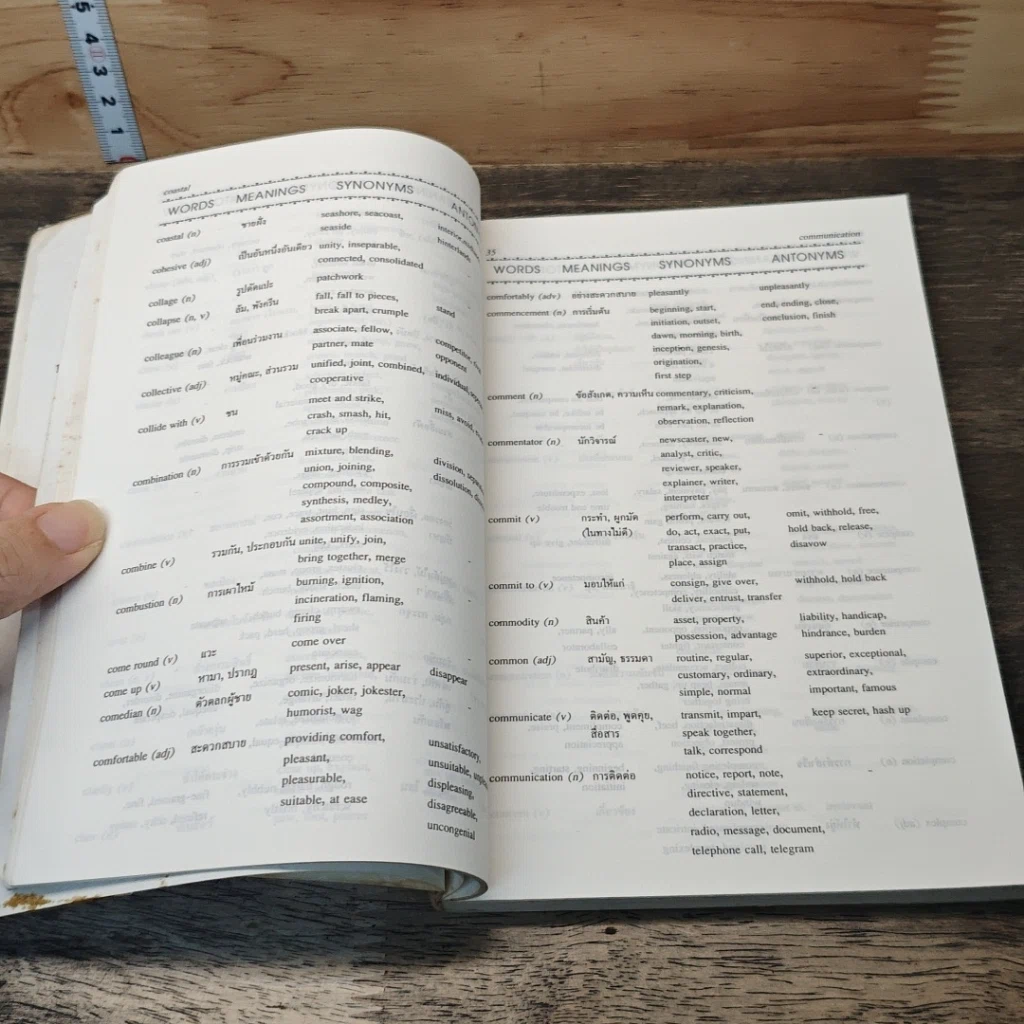 5
4
3
2
1
coastal
WORDS MEANINGS SYNONYMS
coastal (n) ชายฝั่ง seashore, seacoast,
seaside
cohesive (adj) เป็นอันหนึ่งอันเดียว unity, inseparable,
connected, consolidated
collage (n) รูปตัดแปะ patchwork
collapse (n, v) ล้ม, พังครืน fall, fall to pieces, stand
break apart, crumple
colleague (n) เพื่อนร่วมงาน associate, fellow,
partner, mate opponent
collective (adj) หมู่คณะ, ส่วนรวม unified, joint, combined,
cooperative
collide with (v) ชน meet and strike, miss, avoid,
crash, smash, hit,
crack up
combination (n) การรวมเข้าด้วยกัน mixture, blending, division,
union, joining, dissolution,
compound, composite,
synthesis, medley,
assortment, association
combine (v) รวมกัน, ประกอบกัน unite, unify, join, -
bring together, merge
combustion (n) การเผาไหม้ burning, ignition, -
incineration, flaming,
firing
come round (v) แวะ come over -
come up (v) หามา, ปรากฏ present, arise, appear disappear
comedian (n) ตัวตลกผู้ชาย comic, joker, jokester, -
humorist, wag
comfortable (adj) สะดวกสบาย providing comfort, unsatisfactory,
pleasant, unsuitable,
pleasurable, displeasing,
suitable, at ease disagreeable,
uncongenial
35 communication
WORDS MEANINGS SYNONYMS ANTONYMS
comfortably (adv) อย่างสะดวกสบาย pleasantly unpleasantly
commencement (n) การเริ่มต้น beginning, start, end, ending, close,
initiation, outset, conclusion, finish
dawn, morning, birth,
inception, genesis,
origination,
first step
comment (n) ข้อสังเกต, ความเห็น commentary, criticism, -
remark, explanation,
observation, reflection
commentator (n) นักวิจารณ์ newscaster, new, -
analyst, critic,
reviewer, speaker,
explainer, writer,
interpreter
commit (v) กระทำ, ผูกมัด perform, carry out, omit, withhold, free,
(ในทางไม่ดี) do, act, exact, put, hold back, release,
transact, practice, disavow
place, assign
commit to (v) มอบให้แก่ consign, give over, withhold, hold back
deliver, entrust, transfer
commodity (n) สินค้า asset, property, liability, handicap,
possession, advantage hindrance, burden
common (adj) สามัญ, ธรรมดา routine, regular, superior, exceptional,
customary, ordinary, extraordinary,
simple, normal important, famous
communicate (v) ติดต่อ, พูดคุย, transmit, impart, keep secret, hash up
สื่อสาร speak together,
talk, correspond
communication (n) การติดต่อ notice, report, note, -
directive, statement,
declaration, letter,
radio, message, document,
telephone call, telegram